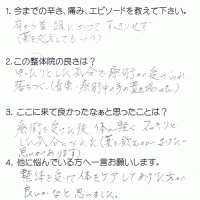 1. 今までの辛さ、痛み、エピソードを教えて下さい。
肩から首、頭にかけて すっきりせず
(薬を処方してもらう)
2. この整体院の良さは？
ゆったりとした気分で療術が受けられ
落ちつく(音楽・療術中の
3. ここに来て良かったなぁと思ったことは？
療術を受けた後 体が軽く スッキリと
した気分になれた (薬を飲む
思いがあります)
4. 他に悩んでいる方へ一言お願いします。
整体を受けて体をケアしてあげた方が
良いかなと思いました。